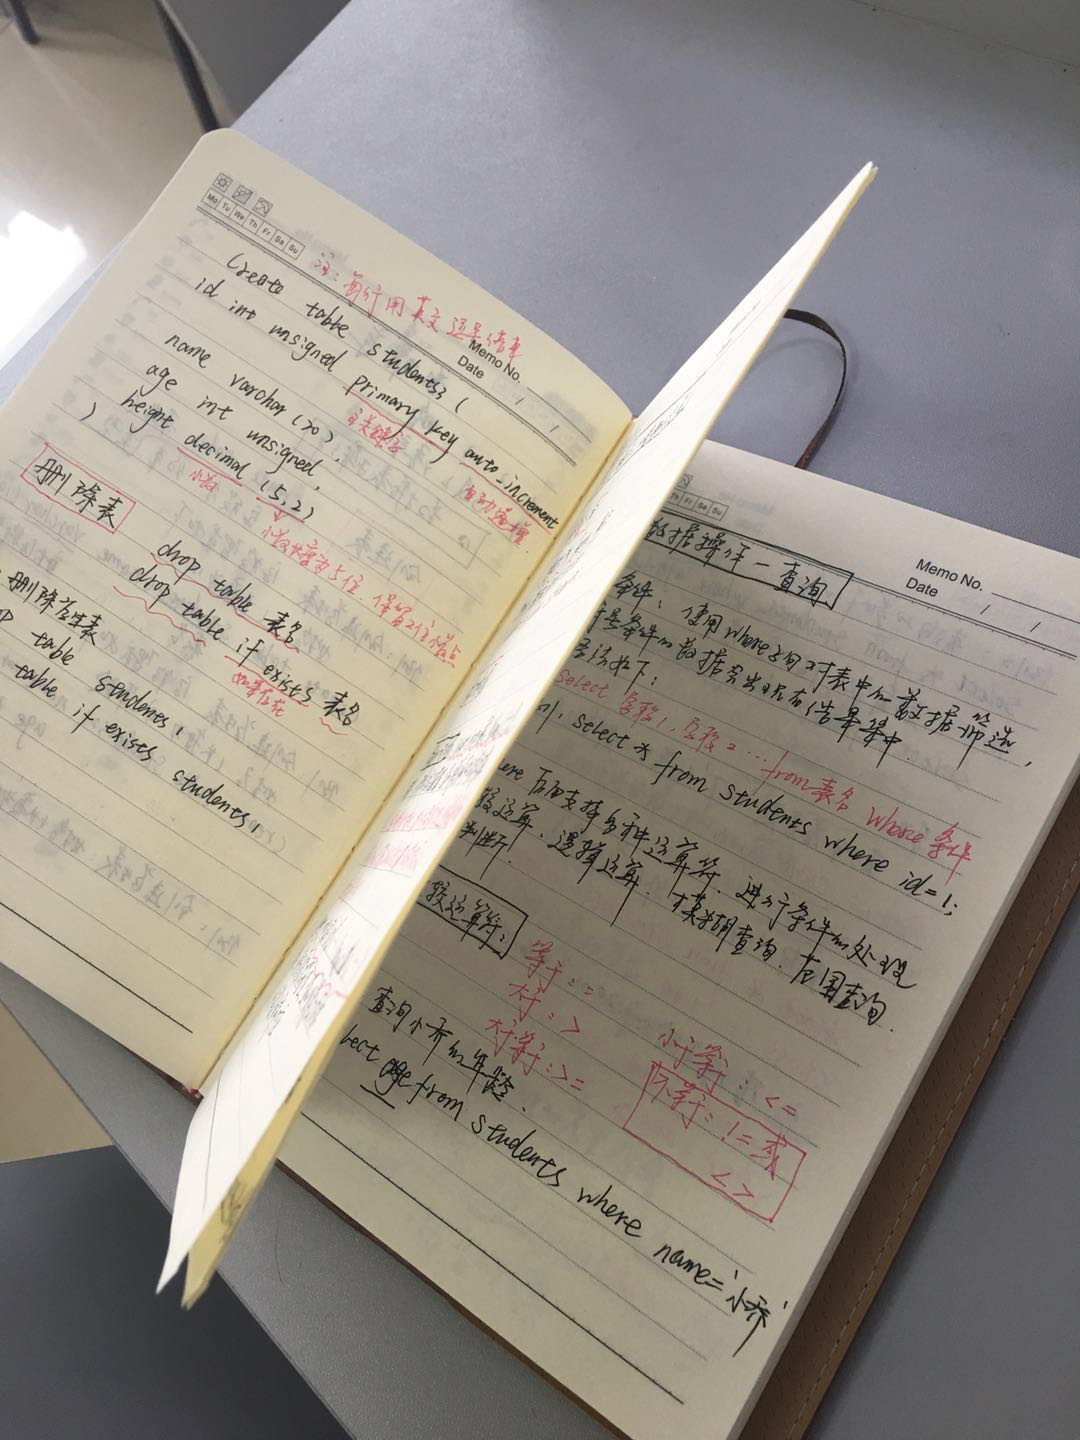 Mo Tu We Th Fr Sa Su
注:每行用英文逗号结束
Memo No.
Date / /
Create table students3 (
id int unsigned primary key auto_increment
主关键字
自动递增
name varchar (20),
age int unsigned,
height decimal (5,2)
小数
)
小数长度为5位 保留2位小数点
删除表
drop table 表名
drop table if exists 表名
如果存在
删除学生表
table students;
table if exists students;
Th Fr Sa Su
Memo No.
Date / /
数据操作—查询
条件: 使用where子句对表中的数据筛选,
条件的数据会出现在结果集中.
语法如下:
select 字段1, 字段2... from 表名 where 条件
例, select * from students where id=1;
后面支持多种运算符, 进行条件的处理
较运算. 逻辑运算. 模糊查询. 范围查询.
判断.
较运算符:
等于: =
大于: >
大于等于: >=
小于等于: <=
不等于: != 或
<>
查询小乔的年龄.
lect age from students where name='小乔'